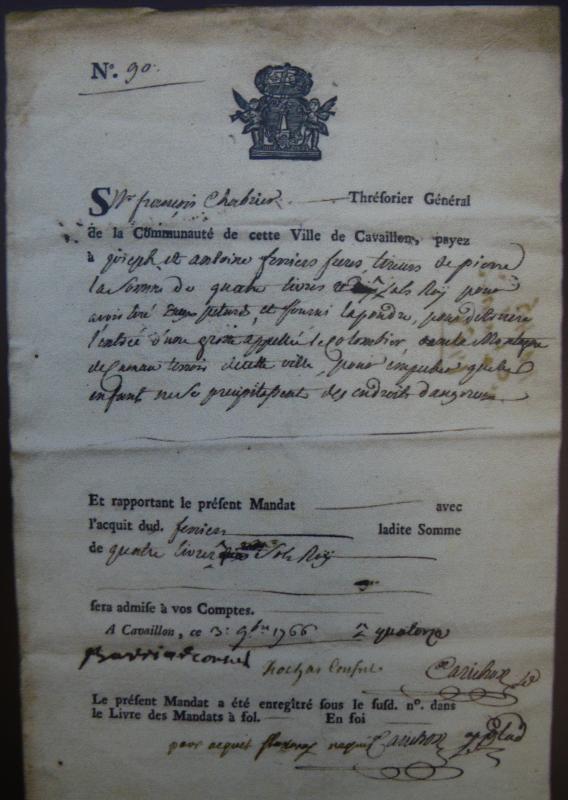 Nº. 90.
Sr. françois Chabrier Thréforier Général
de la Communauté de cette Ville de Cavaillon, payez
à joseph et antoine feniers freres tireurs de pierre
la Somme de quatre livres sols Roy pour
avoir tiré petards, et fourni la poudre, pour detruire
l'entrée d'une grotte appellée le Colombier Montagne
de Caman terroir de cette ville, pour empecher que les
enfants ne se precipitassent des endroits dangereux
Et rapportant le préfent Mandat avec
l'acquit dud. feniers ladite Somme
de quatre livres Sols Roy
fera admife à vos Comptes.
A Cavaillon, ce 3e. 9bre 1766 quatorze
Consul
Rochas Consul
Le préfent Mandat a été enregîtré fous le fufd. nº. dans
le Livre des Mandats à fol. En foi
pour acquit